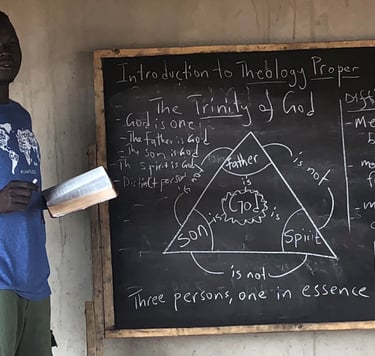 Introduction to Theology Proper
The Trinity of God
- God is one
- The father is God
- The son is God
Th spirit is God
- Distinct person
father
is not
is not
is
God
is
is
Son
Spirit
is not
Three persons, one in essence